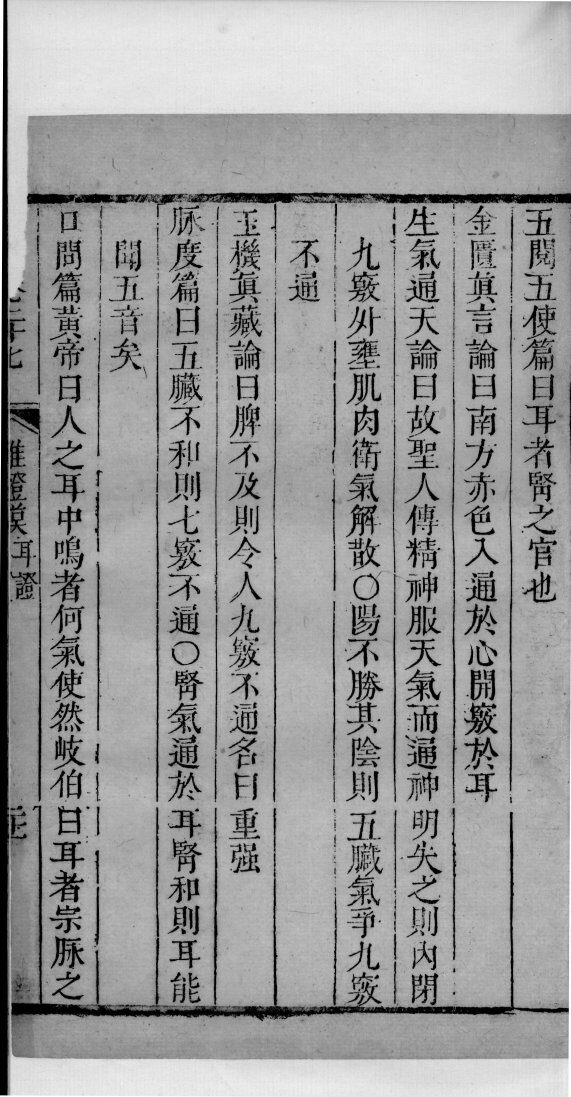 五閱五使篇曰耳者腎之官也
金匱眞言論曰南方赤色入通於心開竅於耳
生氣通天論曰故聖人傳精神服天氣而通神明失之則內閉
九竅外壅肌肉衛氣解散○陽不勝其陰則五臟氣爭九竅
不通
玉機眞藏論曰脾不及則令人九竅不通名曰重强
脉度篇曰五臟不和則七竅不通○腎氣通於耳腎和則耳能
聞五音矣
口問篇黃帝曰人之耳中鳴者何氣使然岐伯曰耳者宗脉之
二十七 雜證謨 耳證